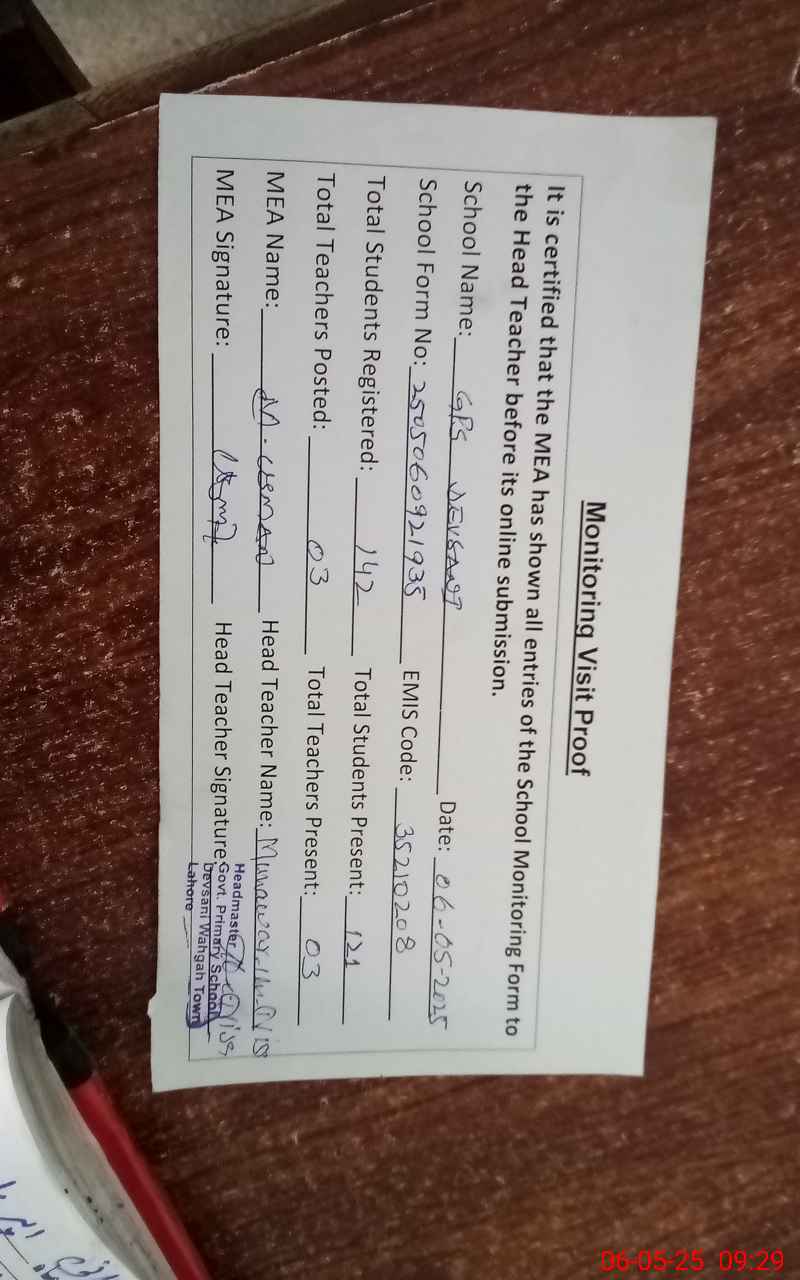 Monitoring Visit Proof
It is certified that the MEA has shown all entries of the School Monitoring Form to
the Head Teacher before its online submission.
School Name: GPS DEVSANI Date: 06-05-2025
School Form No: 2505060921935 EMIS Code: 35210208
Total Students Registered: 142 Total Students Present: 121
Total Teachers Posted: 03 Total Teachers Present: 03
MEA Name: M. USMAN Head Teacher Name: Munawar
MEA Signature: Head Teacher Signature:
Headmaster
Govt. Primary School
Devsani Wahgah Town
Lahore
06-05-25 09:29